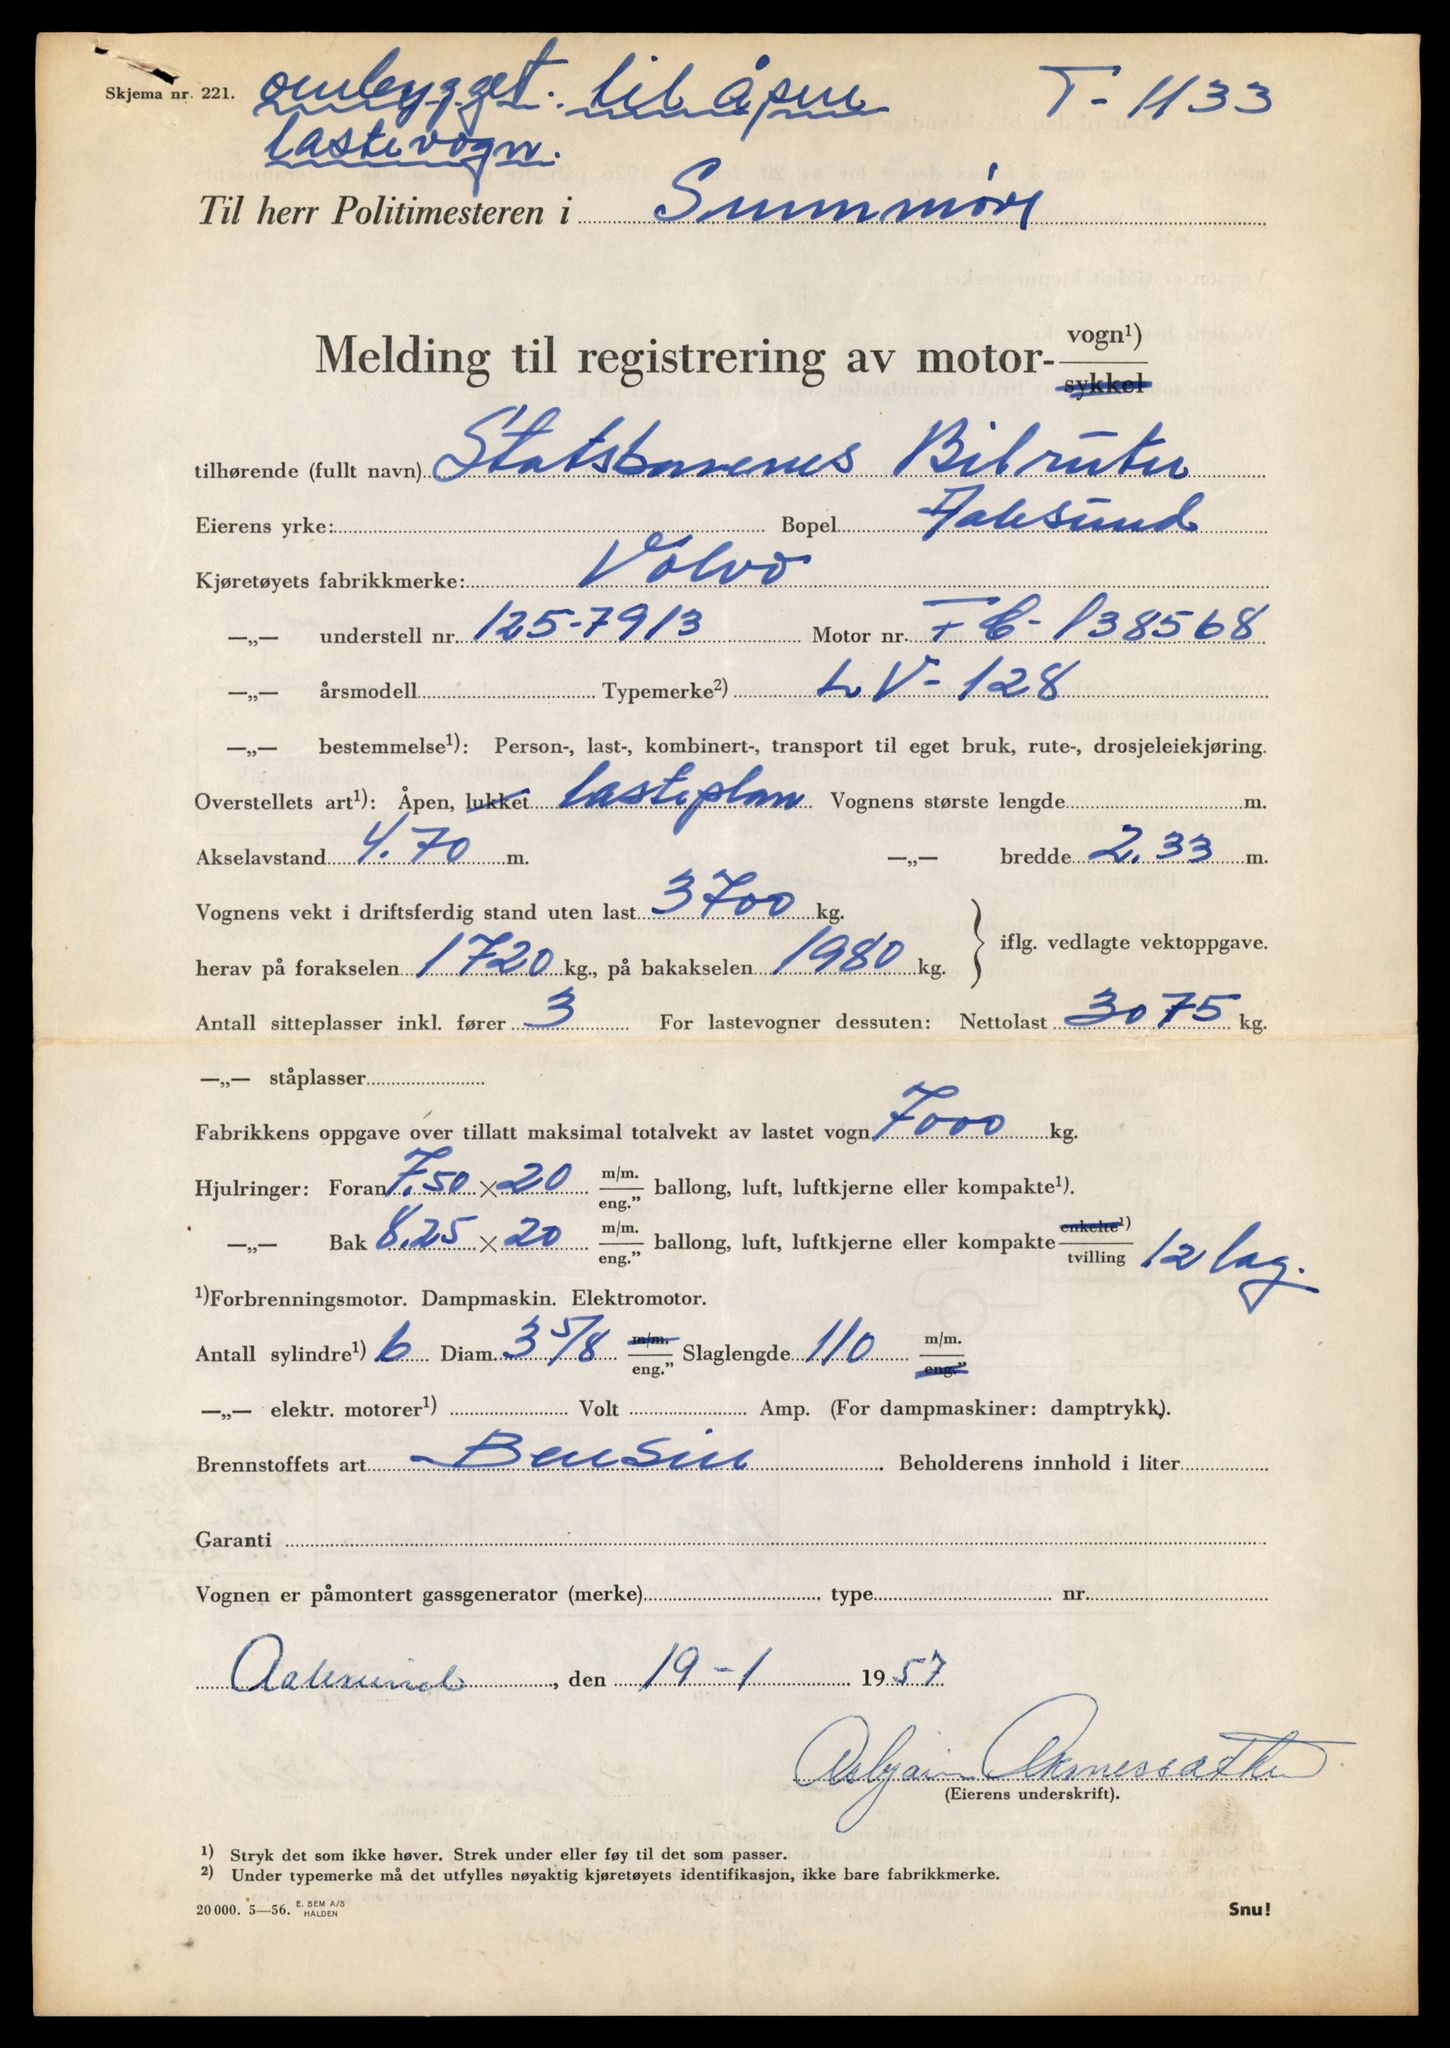 Skjema nr. 221. ombygget til åpen T-1133
lastevogn.
Til herr Politimesteren i Sunnmøre
Melding til registrering av motor- vogn¹)
sykkel
tilhørende (fullt navn) Statsbanenes Bilruter
Eierens yrke: Bopel Aalesund
Kjøretøyets fabrikkmerke: Volvo
—„— understell nr. 125-7913 Motor nr. FC-138568
—„— årsmodell Typemerke²) LV-128
—„— bestemmelse¹): Person-, last-, kombinert-, transport til eget bruk, rute-, drosjeleiekjøring.
Overstellets art¹): Åpen, lukket lasteplan Vognens største lengde m.
Akselavstand 4.70 m. —„— bredde 2.33 m.
Vognens vekt i driftsferdig stand uten last 3700 kg.
iflg. vedlagte vektoppgave.
herav på forakselen 1720 kg., på bakakselen 1980 kg.
Antall sitteplasser inkl. fører 3 For lastevogner dessuten: Nettolast 3075 kg.
—„— ståplasser
Fabrikkens oppgave over tillatt maksimal totalvekt av lastet vogn 7000 kg.
Hjulringer: Foran 7.50 × 20 m/m. eng.” ballong, luft, luftkjerne eller kompakte¹).
—„— Bak 8.25 × 20 m/m. eng.” ballong, luft, luftkjerne eller kompakte enkelte¹) tvilling 12 lag.
¹)Forbrenningsmotor. Dampmaskin. Elektromotor.
Antall sylindre¹) 6 Diam. 3 5/8 m/m. eng.” Slaglengde 110 m/m. eng.”
—„— elektr. motorer¹) Volt Amp. (For dampmaskiner: damptrykk).
Brennstoffets art Bensin Beholderens innhold i liter
Garanti
Vognen er påmontert gassgenerator (merke) type nr.
Aalesund, den 19-1 1957
Asbjørn
(Eierens underskrift).
¹) Stryk det som ikke høver. Strek under eller føy til det som passer.
²) Under typemerke må det utfylles nøyaktig kjøretøyets identifikasjon, ikke bare fabrikkmerke.
20 000. 5—56. E. SEM A/S HALDEN Snu!